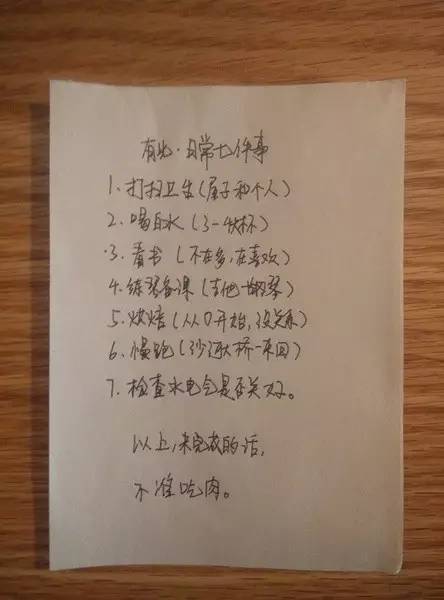 有光·日常七件事
1、打扫卫生(屋子和个人)
2、喝白水(3-4大杯)
3、看书(不在多,在喜欢)
4、练琴备课(吉他+钢琴)
5、烘焙(从0开始,没关系)
6、慢跑(沙河大桥一来回)
7、检查水电气是否关好。
以上,未完成的话,
不准吃肉。